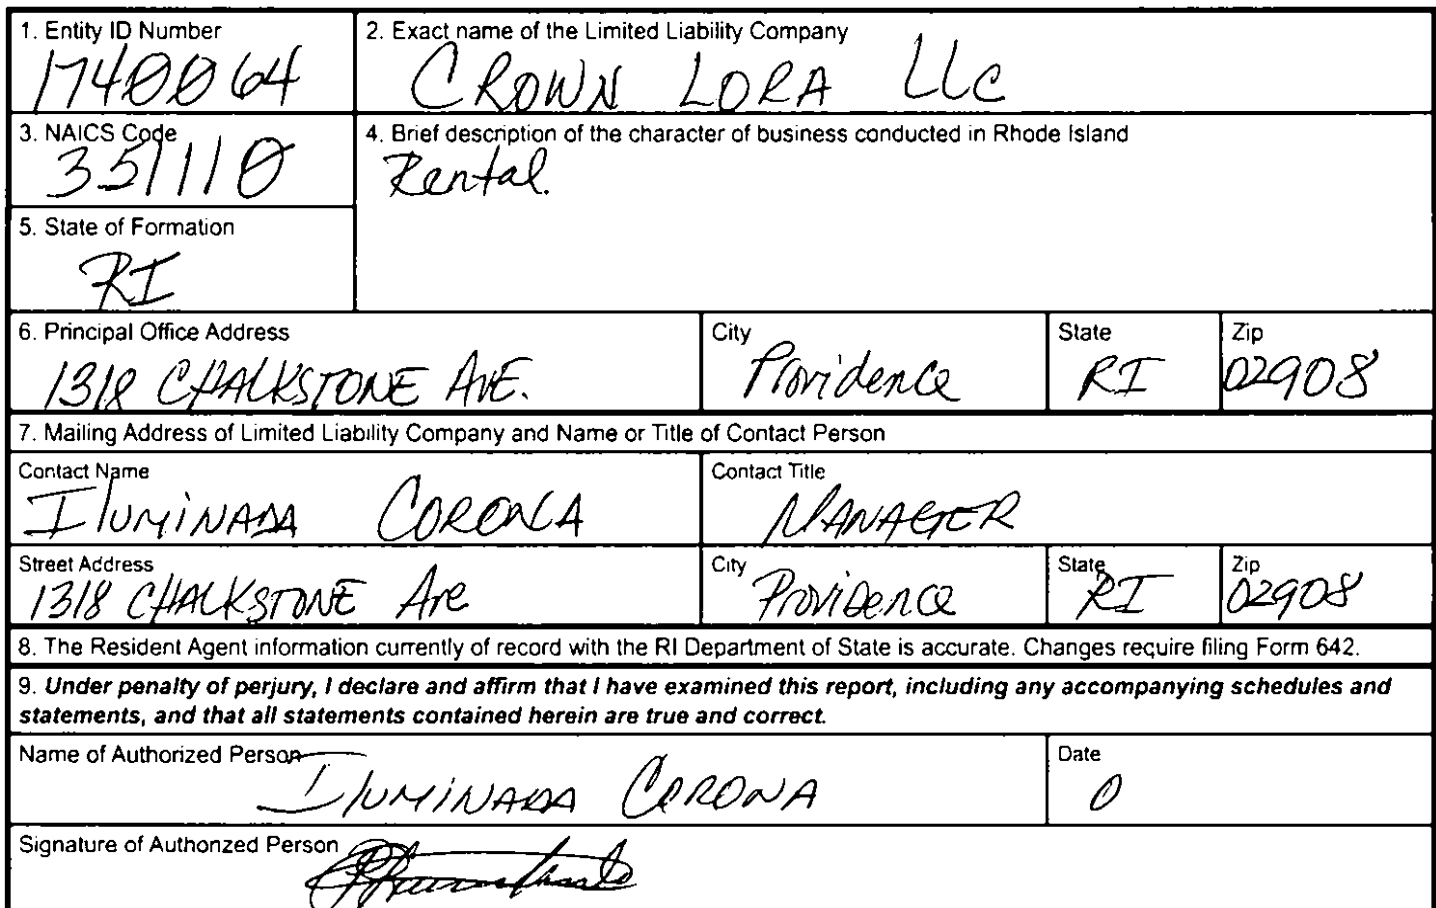 1. Entity ID Number
1740064
2. Exact name of the Limited Liability Company
CROWN LORA LLC
3. NAICS Code
351110
4. Brief description of the character of business conducted in Rhode Island
Rental.
5. State of Formation
RI
6. Principal Office Address
1318 CHALKSTONE AVE.
City
Providence
State
RI
Zip
02908
7. Mailing Address of Limited Liability Company and Name or Title of Contact Person
Contact Name
IlUMiNADA CORONA
Contact Title
MANAGER
Street Address
1318 CHALKSTONE Ave
City
Providence
State
RI
Zip
02908
8. The Resident Agent information currently of record with the RI Department of State is accurate. Changes require filing Form 642.
9. Under penalty of perjury, I declare and affirm that I have examined this report, including any accompanying schedules and
statements, and that all statements contained herein are true and correct.
Name of Authorized Person
IlUMINADA CORONA
Date
0
Signature of Authorized Person